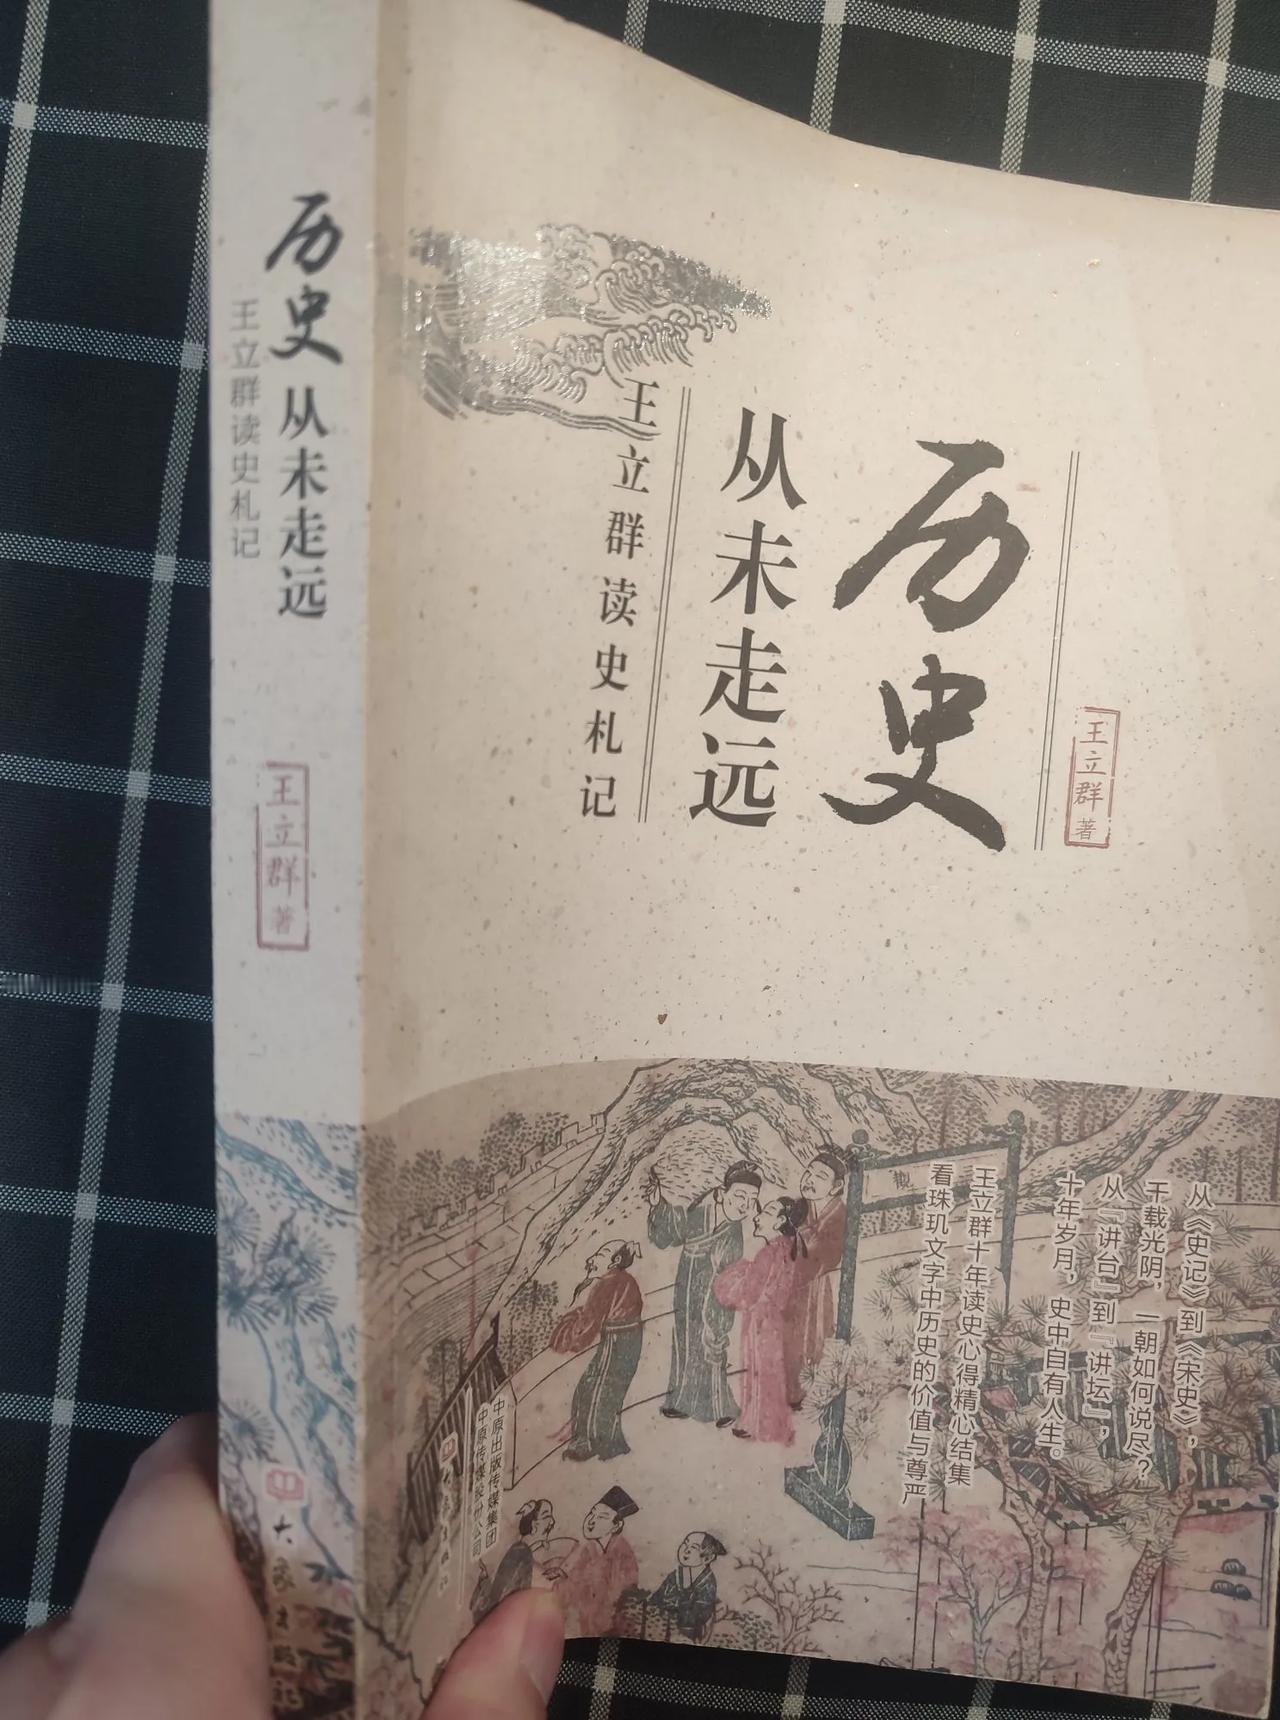 历史
从未走远
王立群读史札记
王立群 著
历史
从未走远
王立群读史札记
王立群 著
观
从《史记》到《宋史》，
千载光阴，一朝如何说尽？
从『讲台』到『讲坛』，
十年岁月，史中自有人生。
王立群十年读史心得精心结集
看珠玑文字中历史的价值与尊严
中原出版传媒集团
中原传媒股份公司
大象出版社
大象出版社